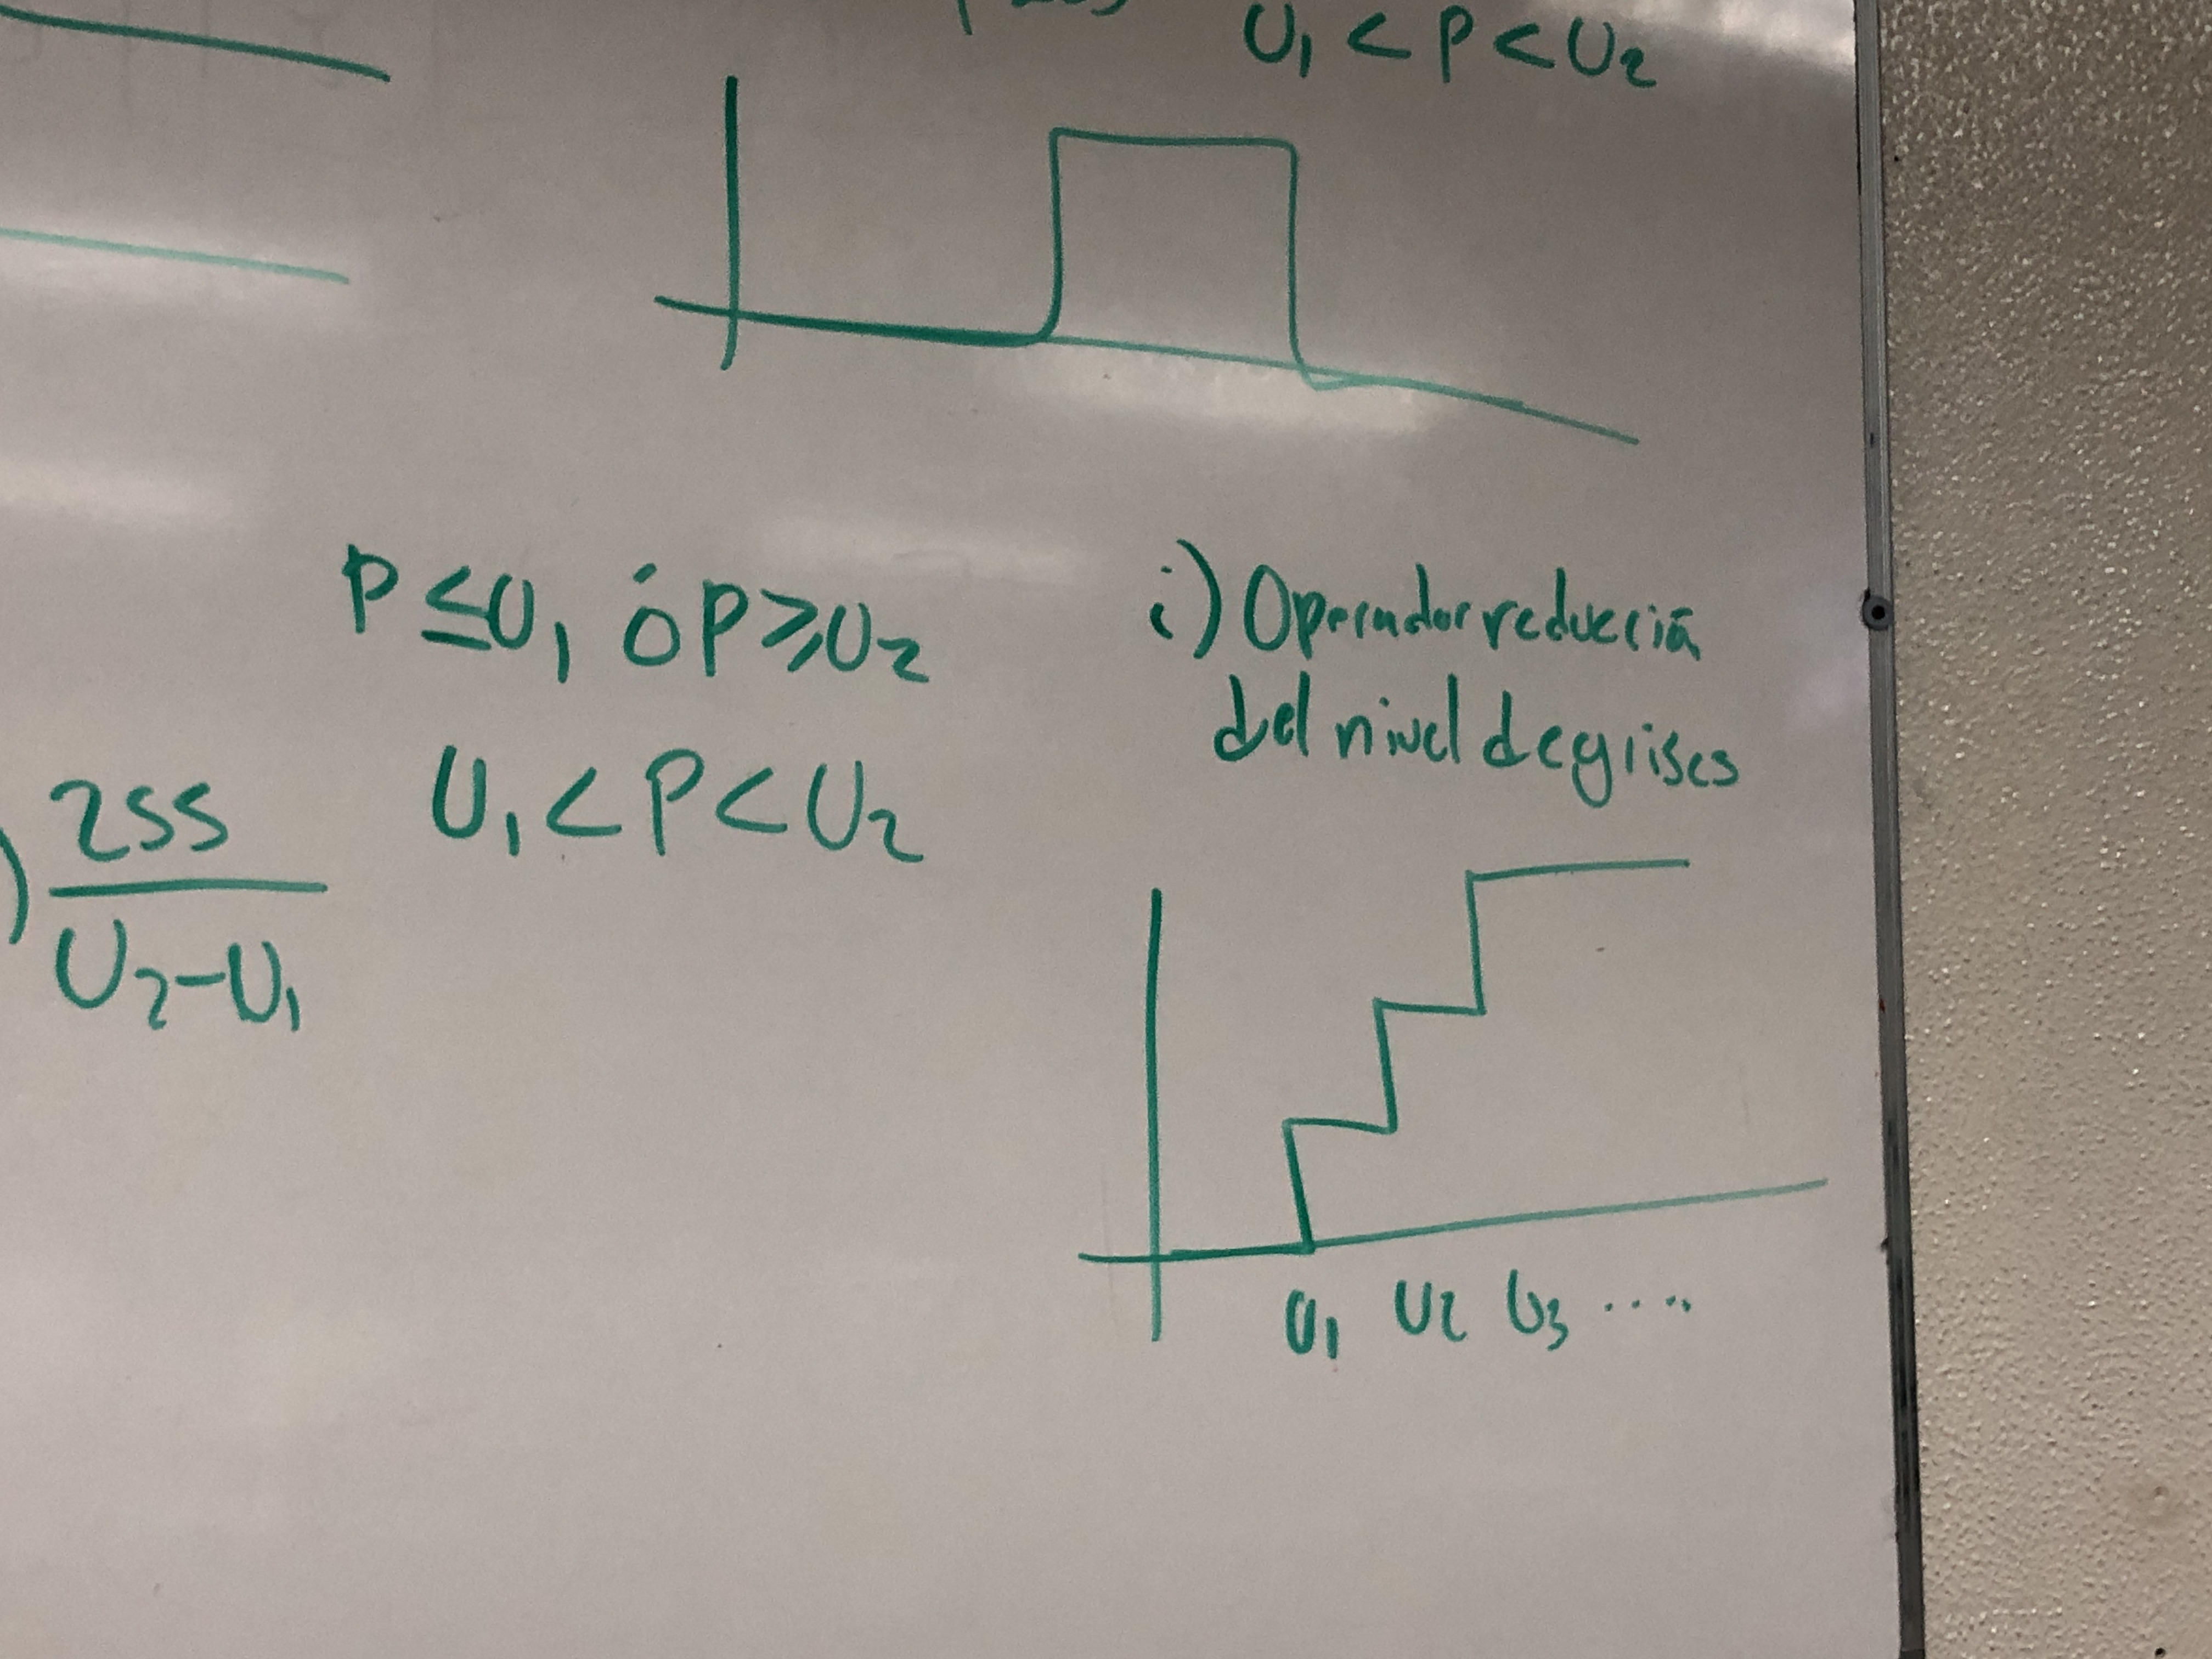 U₁ < P < U₂
P ≤ U₁ ó P ≥ U₂
U₁ < P < U₂
) 255
U₂-U₁
i) Operador reducción
del nivel de grises
U₁ U₂ U₃ .....